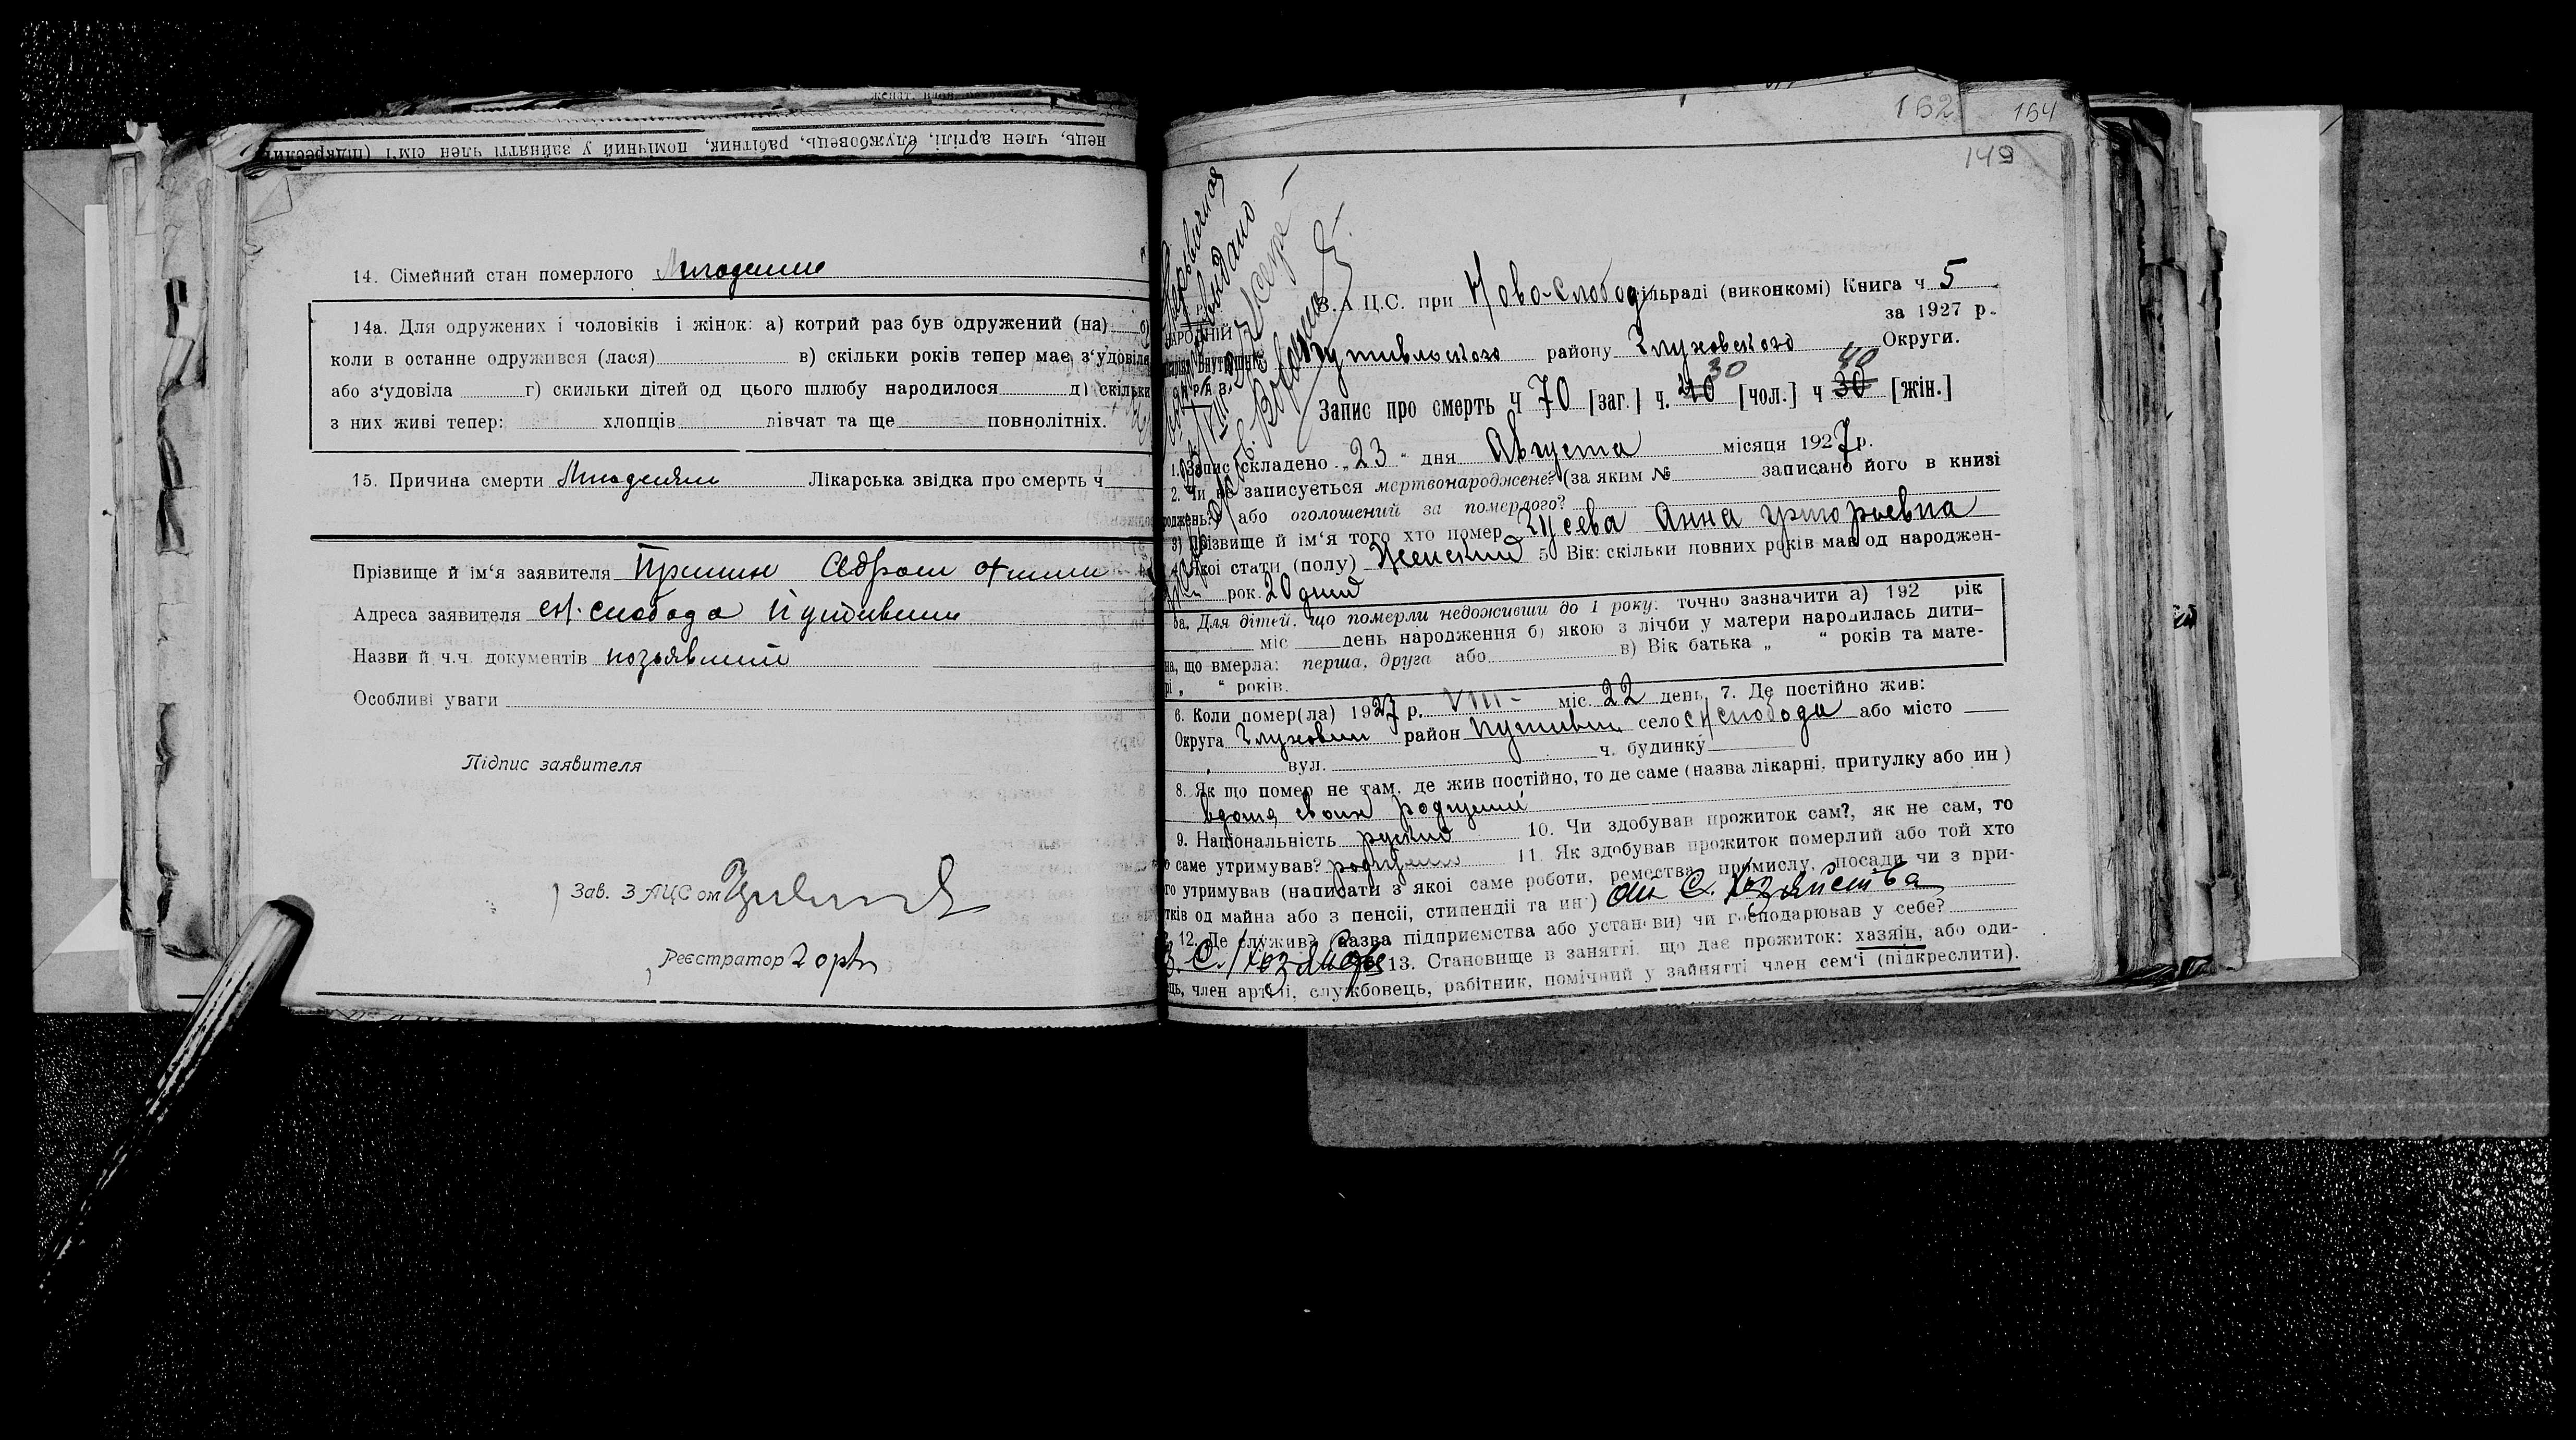 нець, член артілі, службовець, рабітник, помічний у зайнятті член сім'ї (підкреслити)
14. Сімейний стан померлого Младенец
14а. Для одружених і чоловіків і жінок: а) котрий раз був одружений (на) б)
коли в останне одружився (лася) в) скільки років тепер має з'удовіла
або з'удовіла г) скильки дітей од цього шлюбу народилося д) скільки
з них живі тепер: хлопців дівчат та ще повнолітніх.
15. Причина смерти Младенец Лікарська звідка про смерть ч
Прізвище й ім'я заявителя
Адреса заявителя сн. слобода Путивлий
Назви й ч.ч. документів
Особливі уваги
Підпис заявителя
Зав. ЗАЦСом
Реєстратор
162 164
149
З.А.Ц.С. при Ново-Слобод сільраді (виконкомі) Книга ч 5
за 1927 р.
Путивльского району Глуховского Округи.
30 40
Запис про смерть ч 70 [заг.] ч. 40 [чол.] ч 30 [жін.]
1. Запис складено „23" дня Августа місяця 1927 р.
2. Чи не записується мертвонароджене? (за яким № записано його в книзі
роджень?) або оголошений за померлого?
3) Прізвище й ім'я того хто помер Гусева Анна Григорьевна
4. Якої стати (полу) Женский 5 Вік: скільки повних років мав од народжен-
рок. 20 дний
5а. Для дітей, що померли недоживши до 1 року: точно зазначити а) 192 рік
міс день народження б) якою з лічби у матери народилась дити-
на, що вмерла: перша, друга або в) Вік батька „ " років та мате-
рі „ " років.
6. Коли помер(ла) 1927 р. VIII - міс. 22 день, 7. Де постійно жив:
Округа Глуховск район Путивл село сН слобода або місто
вул. ч. будинку
8. Як що помер не там, де жив постійно, то де саме (назва лікарні, притулку або ин)
вдома своих родителей
9. Національність руский 10. Чи здобував прожиток сам?, як не сам, то
о саме утримував? родители 11. Як здобував прожиток померлий або той хто
го утримував (написати з якої саме роботи, ремества, промислу, посади чи з при-
тків од майна або з пенсії, стипендії та ин.) от С. Хозяйства
12. Де служив (назва підприємства або установи) чи господарював у себе?
в. С./Хозяйстве 13. Становище в занятті, що дає прожиток: хазяін, або оди-
ць, член артілі, службовець, рабітник, помічний у зайнятті член сем'ї (підкреслити).